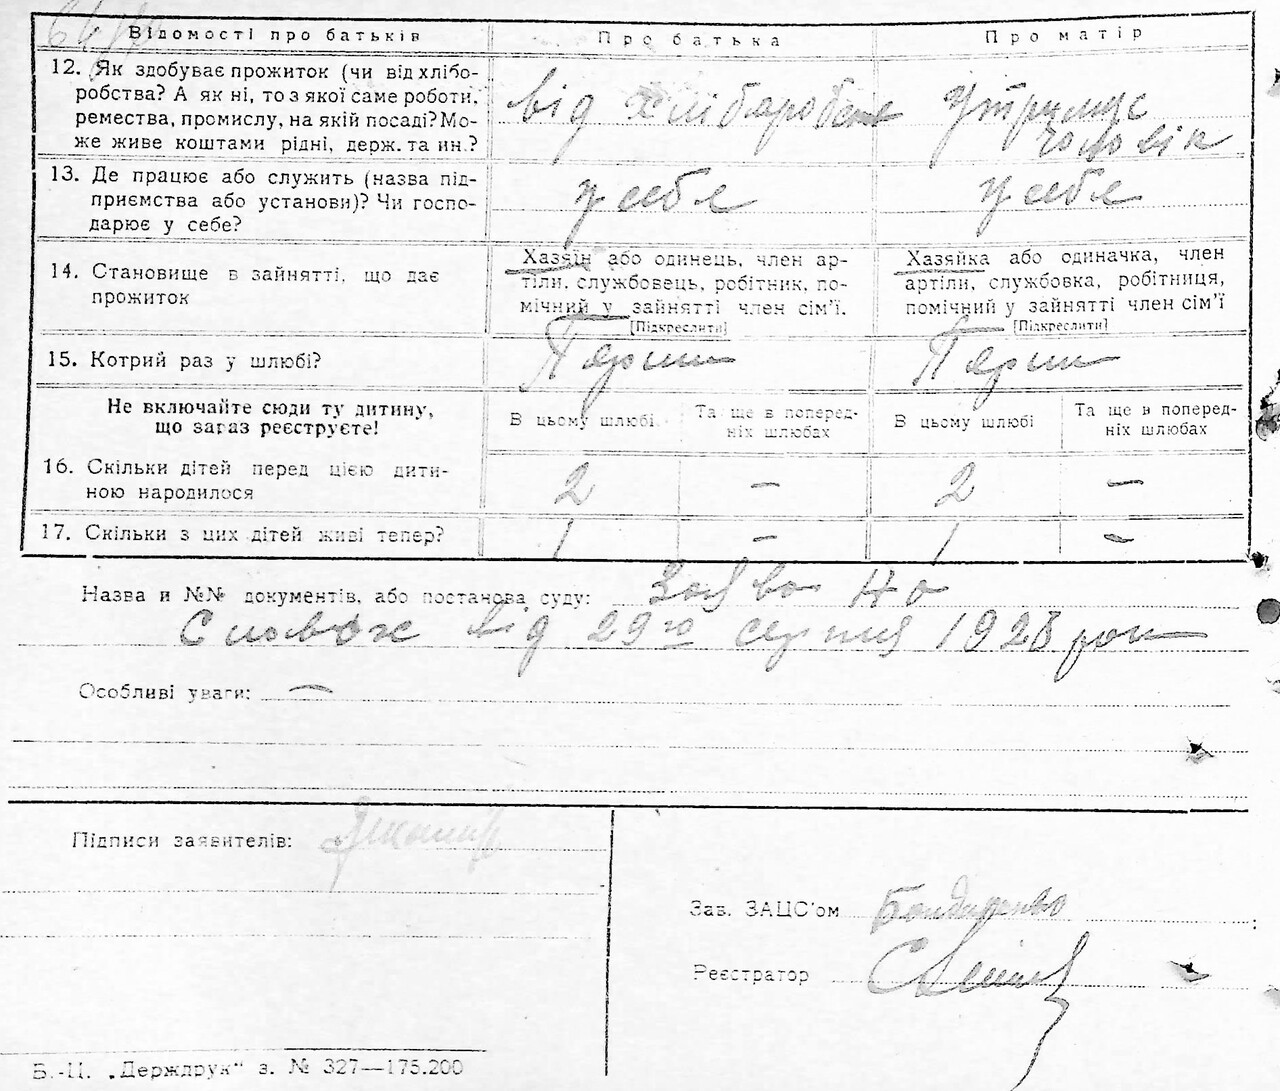 Відомості про батьків Про батька Про матір
12. Як здобуває прожиток (чи від хлібо-
робства? А як ні, то з якої саме роботи,
ремества, промислу, на якій посаді? Мо-
же живе коштами рідні, держ. та ин.?
від хліборобства утримує
чоловік
13. Де працює або служить (назва під-
приємства або установи)? Чи госпо-
дарює у себе?
у себе у себе
14. Становище в зайнятті, що дає
прожиток
Хазяїн або одинець, член ар-
тіли, службовець, робітник, по-
мічний у зайнятті член сім'ї.
[Підкреслити]
Хазяйка або одиначка, член
артіли, службовка, робітниця,
помічний у зайнятті член сім'ї
[Підкреслити]
15. Котрий раз у шлюбі? Перши Перши
Не включайте сюди ту дитину,
що зараз реєструєте!
В цьому шлюбі Та ще в поперед-
ніх шлюбах
В цьому шлюбі Та ще в поперед-
ніх шлюбах
16. Скільки дітей перед цією дити-
ною народилося
2 — 2 —
17. Скільки з цих дітей живі тепер? 1 — 1 —
Назва и №№ документів, або постанова суду: Заява на
словах від 29го серпня 1928 рок
Особливі уваги: —
Підписи заявителів:
Зав. ЗАЦС'ом Бондаренко
Реєстратор
Б.-Ц. „Держдрук" з. № 327—175.200